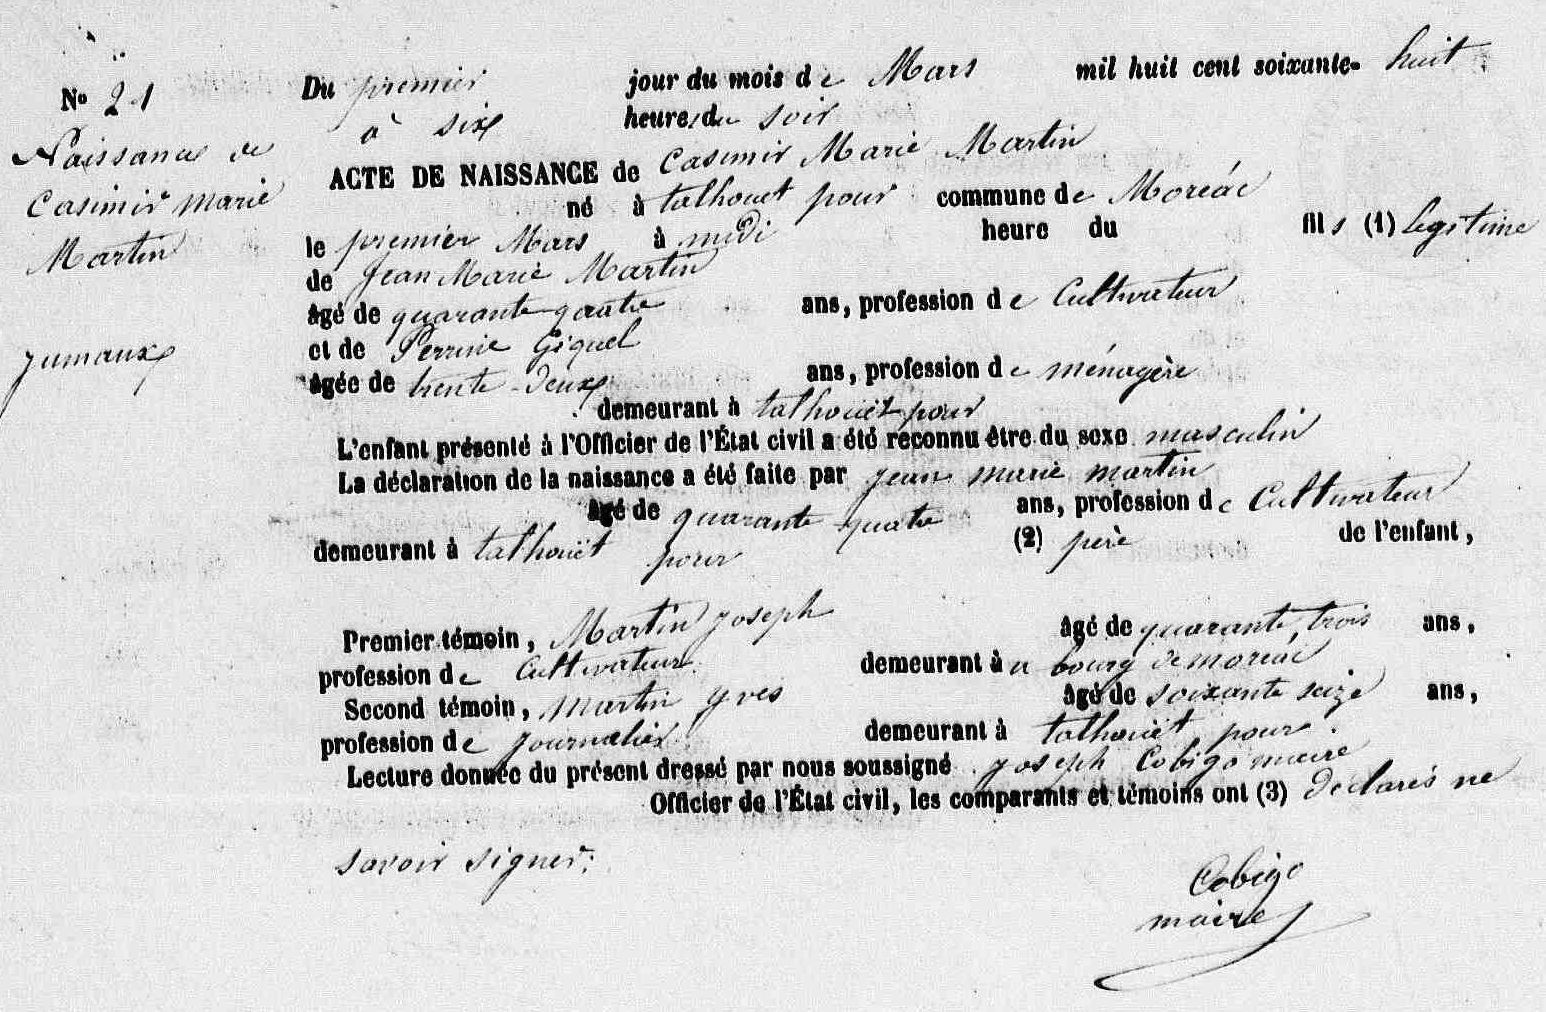 No 21
Naissance de
Casimir Marie
Martin
jumaux
Du premier jour du mois de Mars mil huit cent soixante- huit
à six heures du soir
ACTE DE NAISSANCE de Casimir Marie Martin
né à talhouet pour commune de Moréac
le premier Mars à midi heure du fils (1) legitime
de Jean Marie Martin
âgé de quarante-quatre ans, profession de Cultivateur
et de Perrine Giquel
âgée de trente-deux ans, profession de ménagère
demeurant à talhouët pour
L'enfant présenté à l'Officier de l'État civil a été reconnu être du sexe masculin
La déclaration de la naissance a été faite par jean marie martin
âgé de quarante quatre ans, profession de Cultivateur
demeurant à talhouët pour (2) père de l'enfant,
Premier témoin, Martin joseph âgé de quarante, trois ans,
profession de Cultivateur demeurant à u bourg de moreac
Second témoin, martin yves âgé de soixante seize ans,
profession de journalier demeurant à talhouët pour
Lecture donnée du présent dressé par nous soussigné joseph Cobigo maire
Officier de l'État civil, les comparants et témoins ont (3) declarés ne
savoir signer.
Cobigo
maire